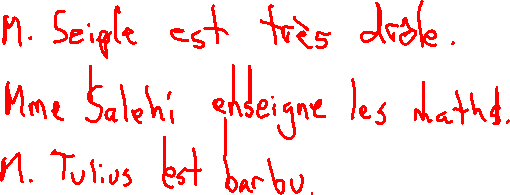 M. Seigle est très drôle.
Mme Salehi enseigne les maths.
M. Tulius est barbu.